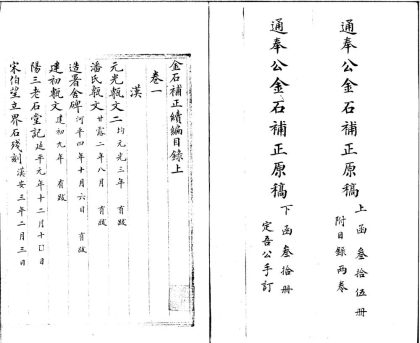 通奉公金石補正原稿 上函叁拾伍冊
附目錄兩卷
通奉公金石補正原稿 下函叁拾冊
定吾公手訂
金石補正續編目錄上
卷一
漢
元光甎文二 均元光三年 有跋
潘氏甎文 甘露二年八月 有跋
造署舍碑 河平四年十月六日 有跋
建初甎文 建初九年 有跋
陽三老石堂記 延平元年十二月十四日
宋伯望立界石殘刻 漢安三年二月三日